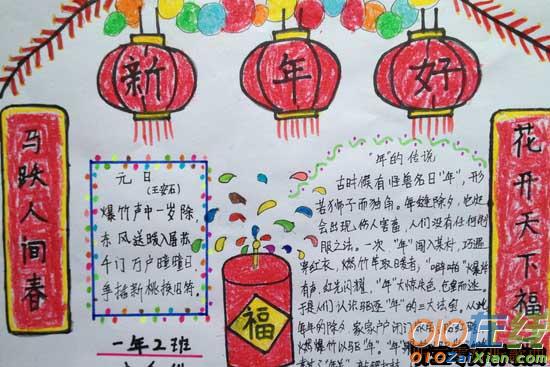 新年好
马跃人间春
花开天下福
元日
(王安石)
爆竹声中一岁除
东风送暖入屠苏
千门万户曈曈日
新桃换旧符.
一年2班
"年"的传说
古时候有怪兽名曰"年",形
若狮子而独角。年终除夕,
会出现伤人害畜,人们没有任何制
服之法。一次"年"闯入某村,巧遇
红衣,燃竹竿取暖者,爆竹
有声,红光闪耀,"年"大惊失色,
于是人们认识驱逐"年"的三大法宝,从此
每年的除夕 家家户户闭门
燃爆竹以驱"年"。"年"
福
O1O在线
O1OZaiXian.com